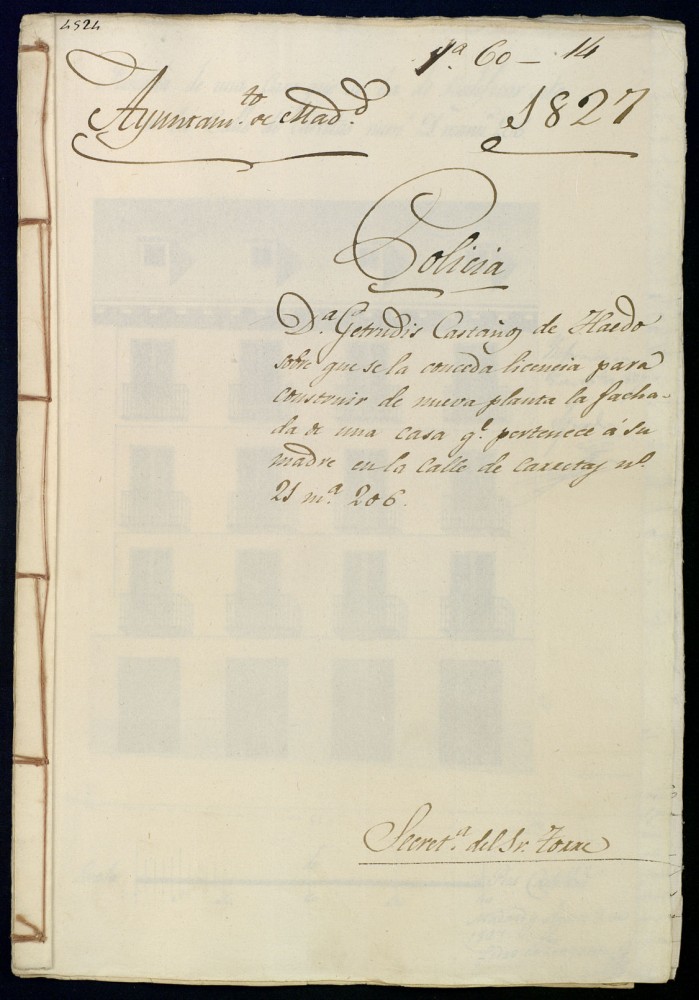 4524
1ª 60 - 14
Ayuntamto. de Madd.
1827
Policia
D.ª Getrudis Castaños de Haedo
sobre que se la conceda licencia para
construir de nueva planta la facha-
da de una casa q.e pertenece á su
madre en la calle de Carretas nº.
21 m.ª 206.
Secret.ª del Sr. Torre